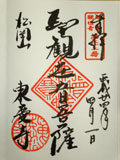 奉拝
平成廿四年
四月一日
聖観世音菩薩
松岡山
東慶寺